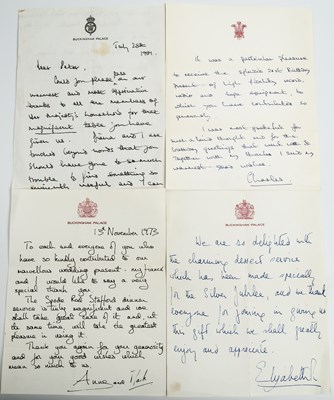 BUCKINGHAM PALACE
July 28th
1981.
Dear Peter,
Could you please pass on our
warmest and most appreciative
thanks to all the members of
Her Majesty's Household for that
magnificent table you have
given us. Diana and I are
touched beyond words that you
should have gone to so much
trouble to find something so
useful and I can
It was a particular pleasure
to receive the splendid 21st Birthday
present of high fidelity sound,
radio and tape equipment, to
which you have contributed so
generously.
I am most grateful for
such a kind thought and for the
greetings that went with it.
Together with my thanks I send my
warmest good wishes.
Charles
BUCKINGHAM PALACE
13th November 1973
To each and everyone of you who
have so kindly contributed to our
marvellous wedding present - my fiancé
and I would like to say a very
special thank you.
The Spode Red Stafford dinner
service is truly magnificent and we
shall take great care of it and, at
the same time, will take the greatest
pleasure in using it.
Thank you again for your generosity
and for your good wishes which
mean so much to us.
Anne and Mark
BUCKINGHAM PALACE
We are so delighted with
the charming dessert service
which has been made specially
for the Silver Jubilee, and we thank
everyone for joining in giving us
this gift which we shall greatly
enjoy and appreciate.
Elizabeth R